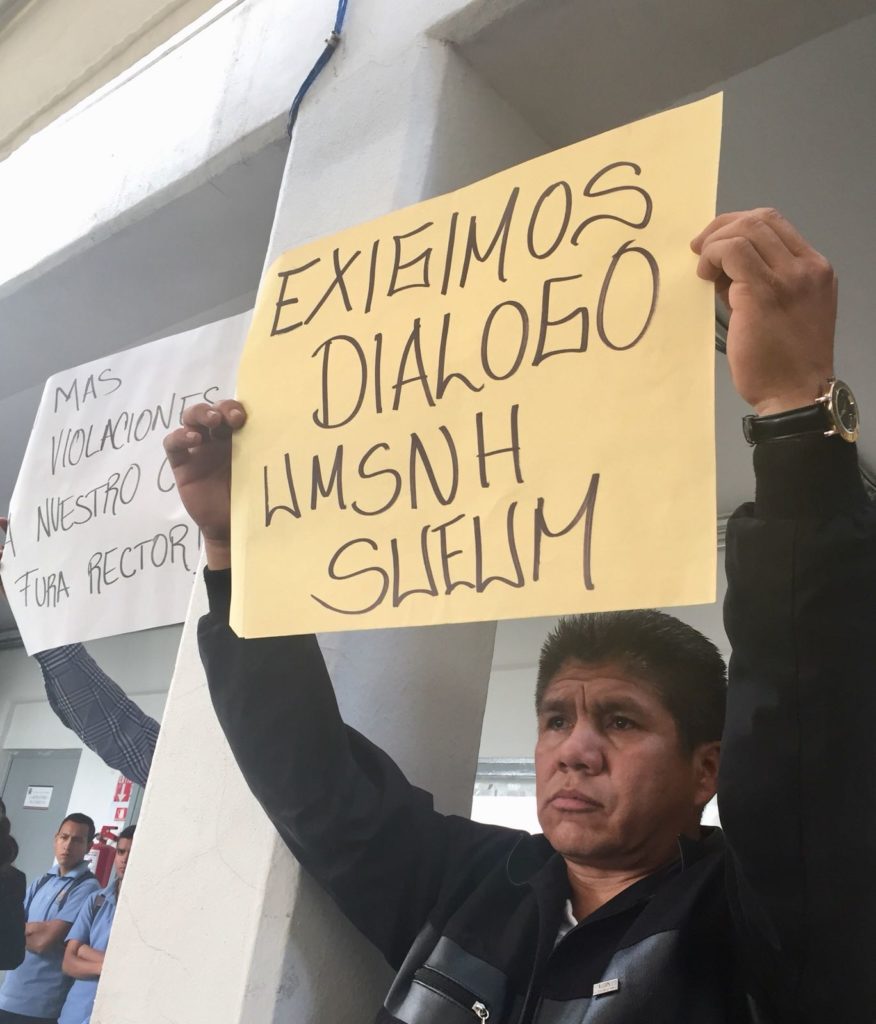 EXIGIMOS
DIALOGO
UMSNH
SUEUM
MAS
VIOLACIONES
A NUESTRO
FURA RECTOR!